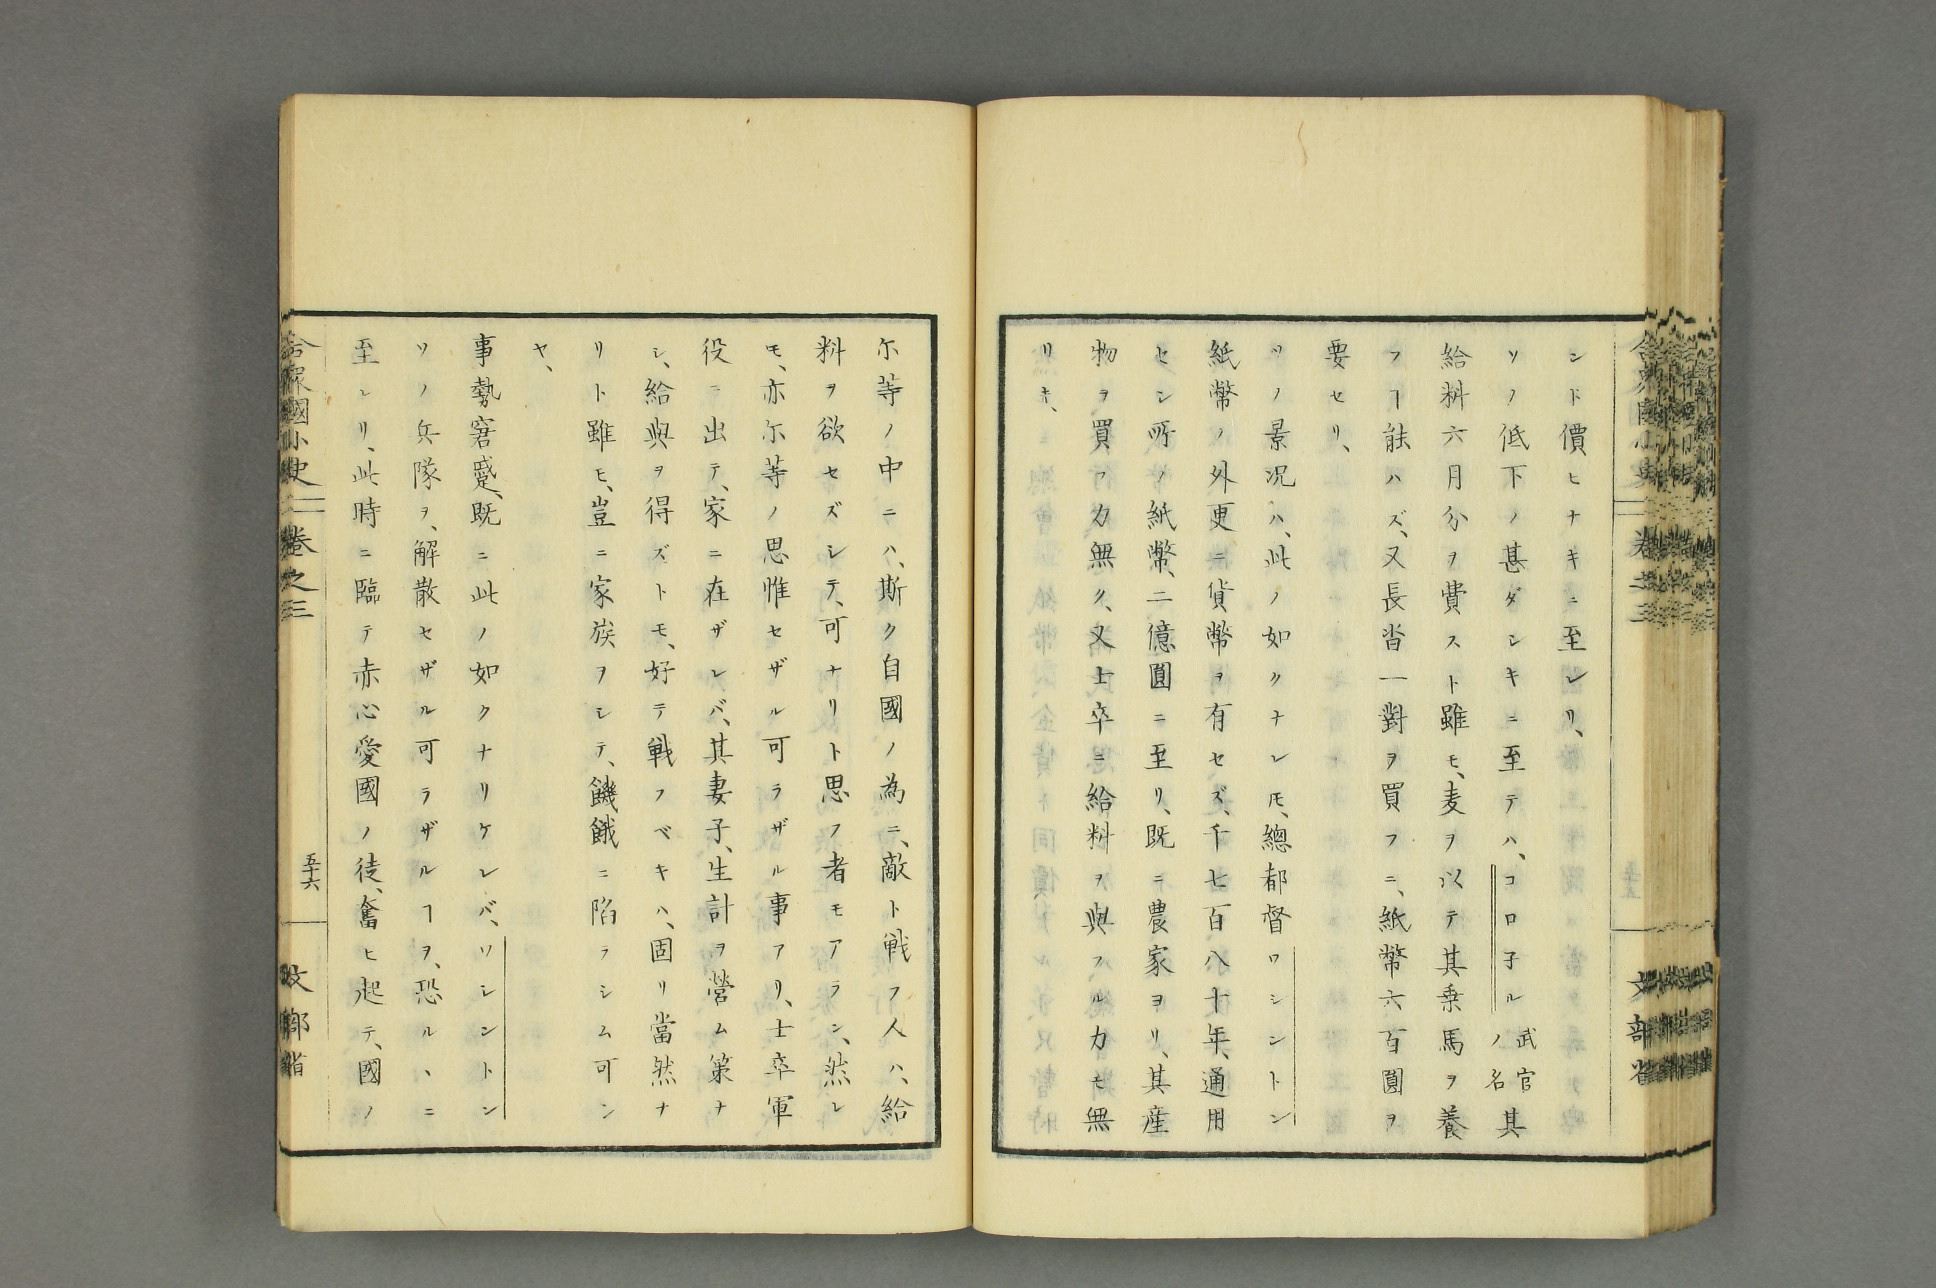 ンド價ヒナキニ至レリ、
ソノ低下ノ甚ダシキニ至テハ、コロ子ル武官ノ名其
給料六月分ヲ費スト雖モ、麦ヲ以テ其乗馬ヲ養
フヿ能ハズ、又長沓一對ヲ買フニ、紙幣六百圓ヲ
要セリ、
ソノ景況ハ、此ノ如クナレ𪜈、總都督ワシントン
紙幣ノ外更ニ貨幣ヲ有セズ、千七百八十年、通用
セシ所ノ紙幣、二億圓ニ至リ、既ニ農家ヨリ、其産
物ヲ買フカ無ク、又士卒ニ給料ヲ與フルカモ無
リキ、
尓等ノ中ニハ、斯ク自國ノ為ニ、敵ト戦フ人ハ、給
料ヲ欲セズシテ、可ナリト思フ者モアラン、然レ
モ、亦尓等ノ思惟セザル可ラザル事アリ、士卒軍
役ニ出テ、家ニ在ザレバ、其妻子、生計ヲ營ム策ナ
シ、給與ヲ得ズトモ、好テ戦フベキハ、固リ當然ナ
リト雖モ、豈ニ家族ヲシテ、饑餓ニ陷ラシム可ン
ヤ、
事勢窘蹙、既ニ此ノ如クナリケレバ、ワシントン
ソノ兵隊ヲ、解散セザル可ラザルヿヲ、恐ル丶ニ
至レリ、此時ニ臨テ赤心愛國ノ徒、奮ヒ起テ、國ノ
合衆國小史 卷之三
五十六
文部省